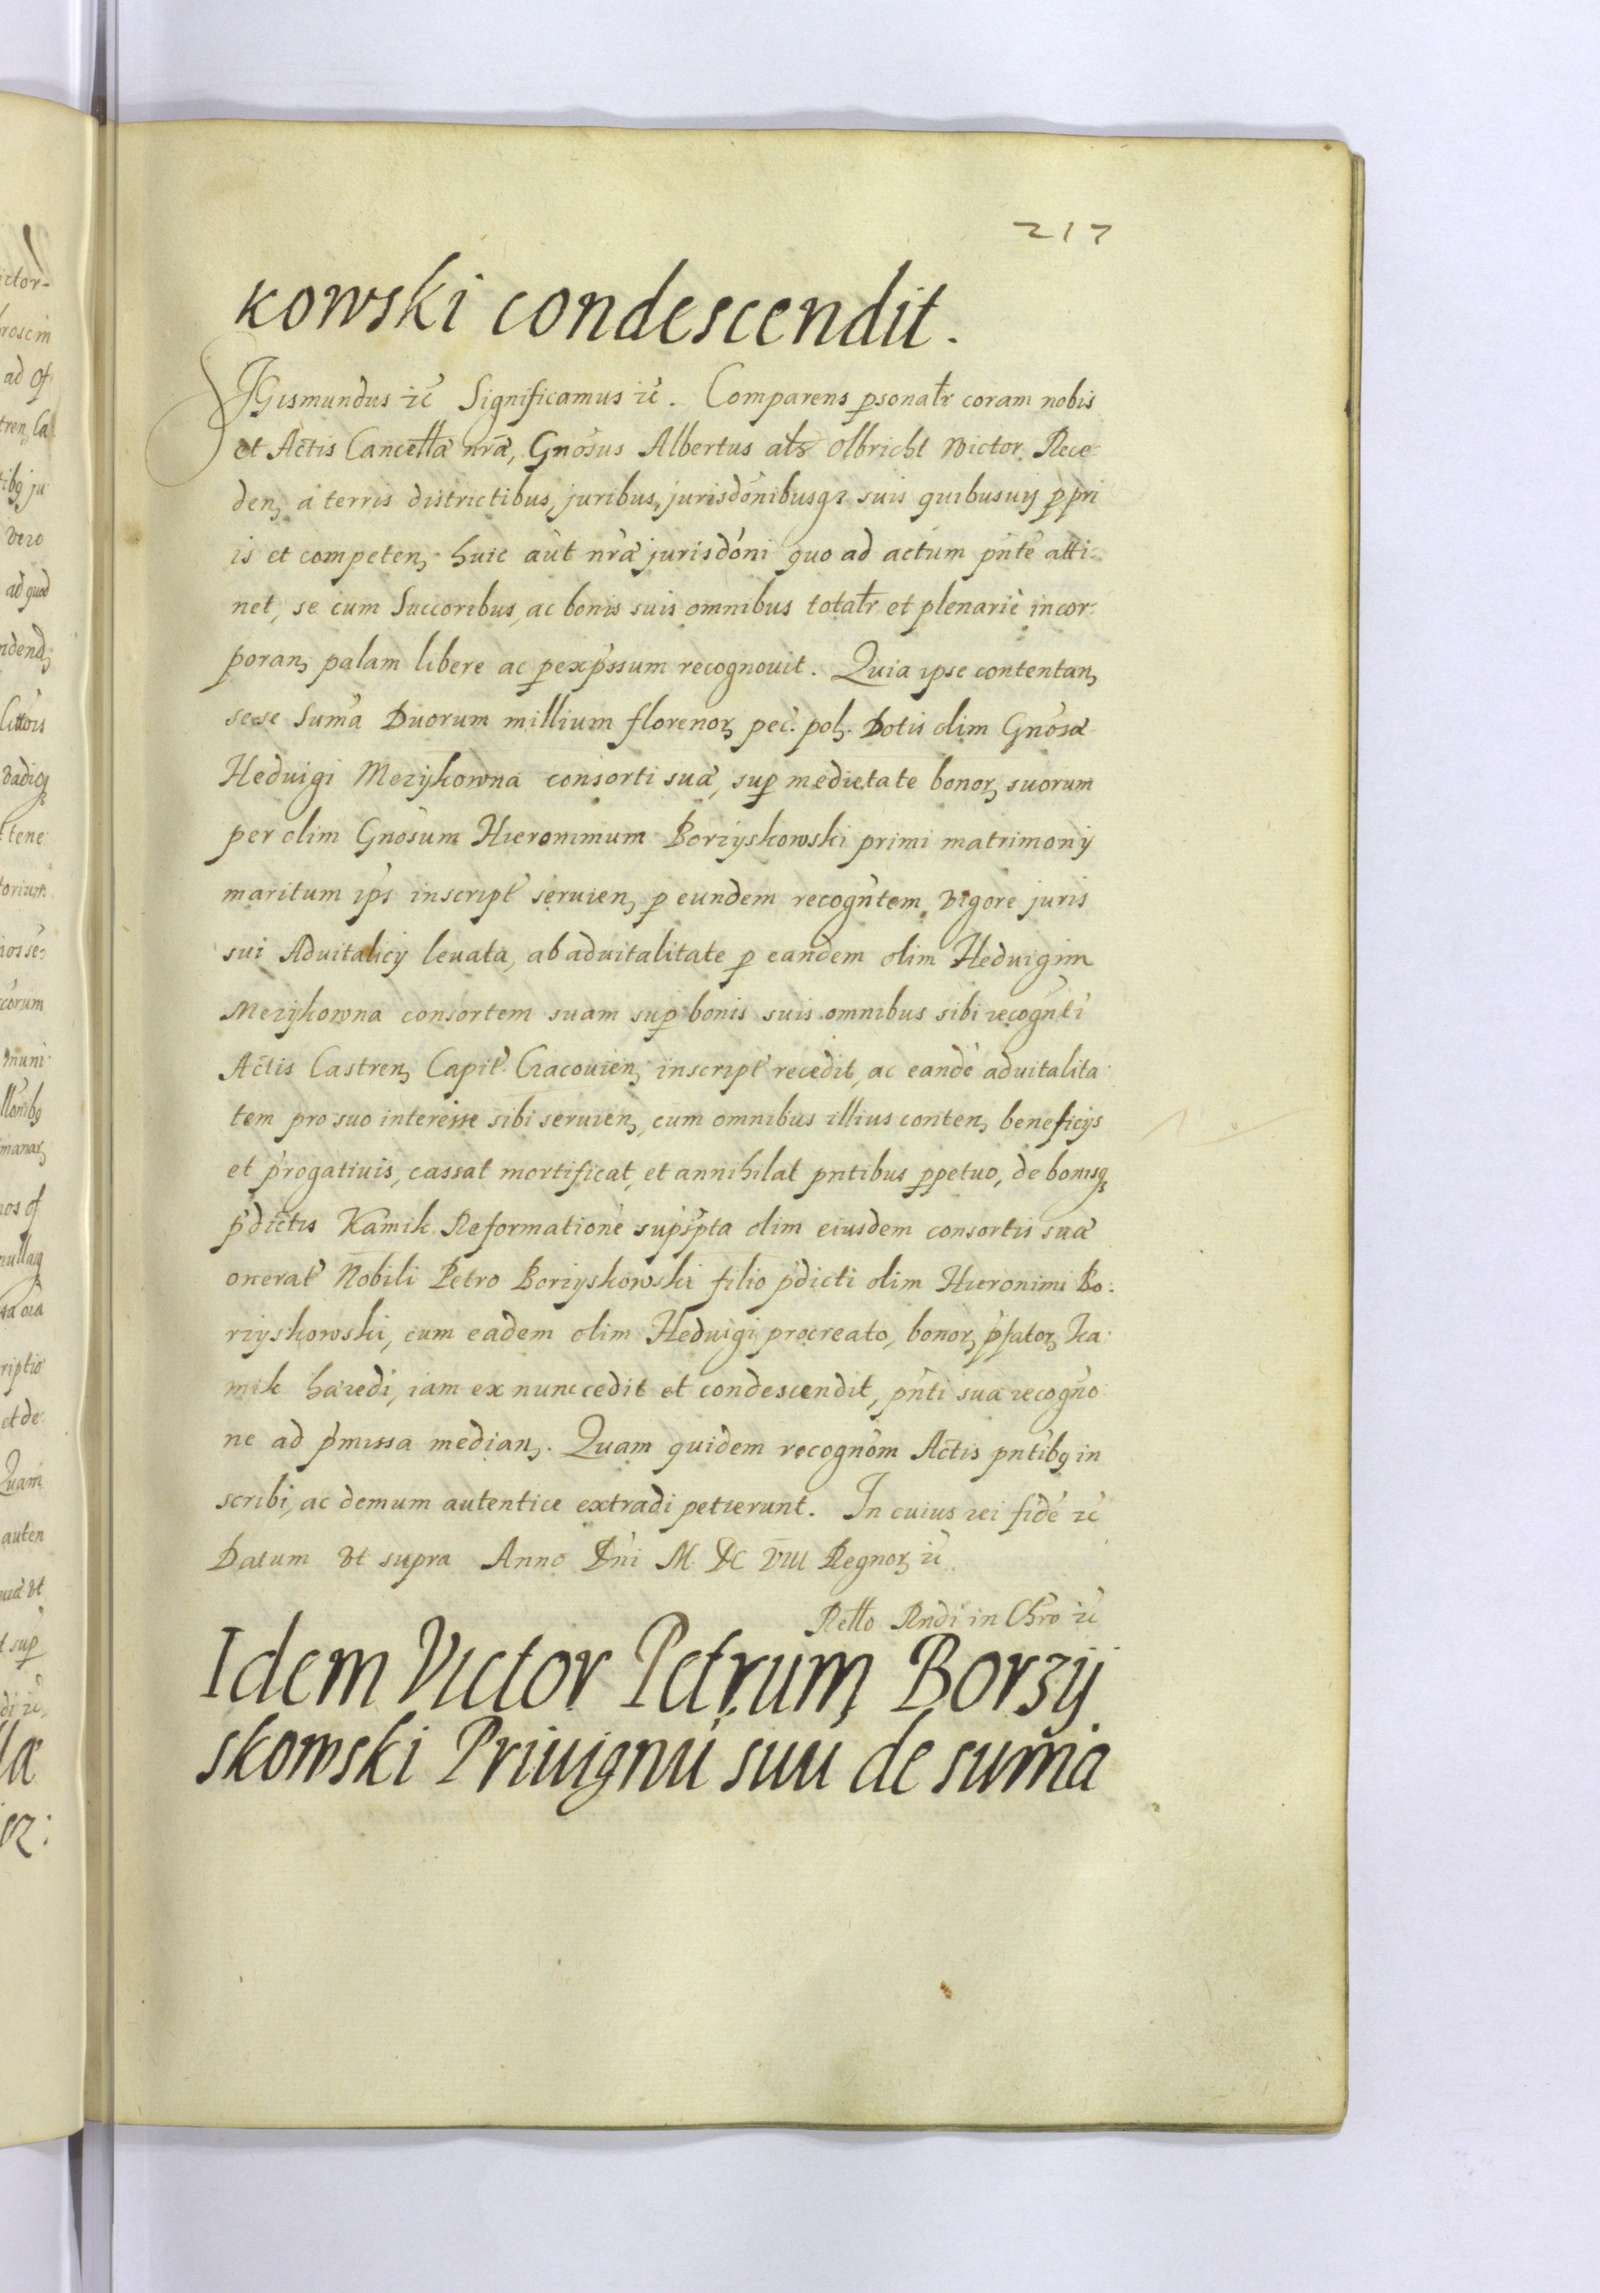 217
kowski condescendit.
SIGismundus ꝛc̃ Significamus ꝛc̃. Comparens ꝑsonalr̃ coram nobis
et Actis Cancellæ nr̃æ, Gnõsus Albertus als Olbricht Wictor Rece-
den, a terris districtibus, juribus, jurisdõnibusqꝫ suis quibusuis ꝓpri
is et competen, huic aũt nr̃æ jurisdõni quo ad actum pñte atti-
net, se cum Succoribus, ac bonis suis omnibus totalr̃ et plenariè incor-
poran, palam libere ac ꝑ exp̃ssum recognouit. Quia ipse contentan,
sese Sum̃a Duorum millium floreno⁊ pec̃. pol. Dotis olim Gnõsæ
Heduigi Mezykowna consorti suæ, suꝑ medietate bono⁊ suorum
per olim Gnõsum Hieronimum Borzyskowski primi matrimonÿ
maritum ip̃s inscript̃ seruien, ꝑ eundem recogñtem vigore juris
sui Aduitalicÿ leuata, ab aduitalitate ꝑ eandem olim Heduigim
Mezykowna consortem suam suꝑ bonis suis omnibus sibi recogñti
Actis Castren, Capit̃. Cracouien, inscript̃ recedit, ac eandẽ aduitalita-
tem pro suo interesse sibi seruien, cum omnibus illius conten, beneficÿs
et p̃rogatiuis, cassat mortificat, et annihilat pñtibus ꝑpetuo, de bonisqꝫ
p̃dictis Kamik Reformationẽ sup̃sp̃ta olim eiusdem consortis suæ
onerat̃ Nobili Petro Borzyskowski filio p̃dicti olim Hieronimi Bo-
rzyskowski, cum eadem olim Heduigi procreato, bono⁊ p̃fato⁊ Ka-
mik hæredi, iam ex nunc cedit et condescendit, pñti sua recogño-
ne ad p̃missa median. Quam quidem recognõm Actis pñtibꝫ in
scribi, ac demum autentice extradi petierunt. In cuius rei fidẽ ꝛc̃
Datum vt supra Anno Dñi M. DC VIII Regno⁊ ꝛc̃.
Rello Rñdi in Chr̃o ꝛc̃
Idem Victor Petrum Borzÿ
skowski Priuignũ suũ de sum̃a